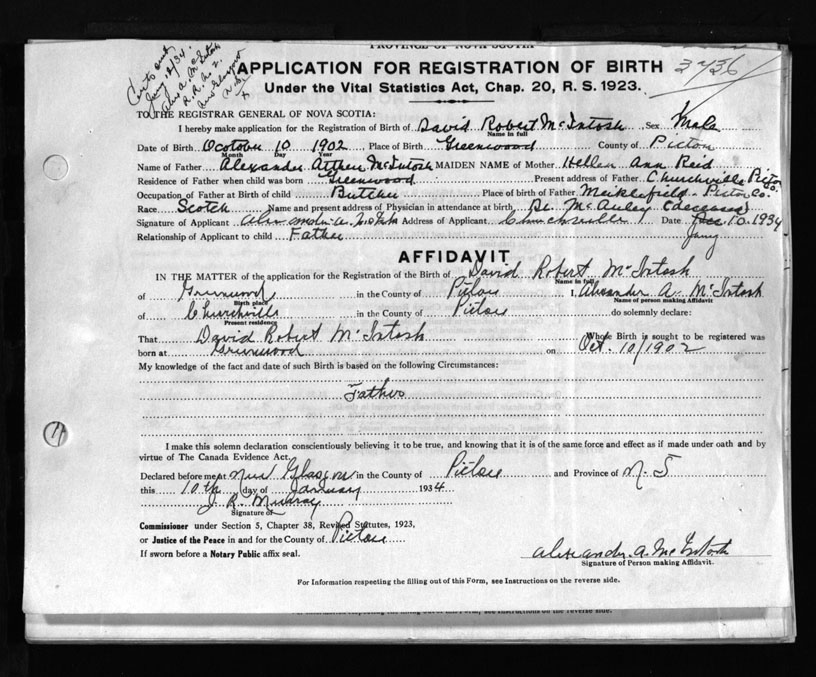 PROVINCE OF NOVA SCOTIA
Certs out
Jany 18/34.
Alex A. McIntosh
R.R. No 2.
New Glasgow
N.S.
APPLICATION FOR REGISTRATION OF BIRTH 3736
Under the Vital Statistics Act, Chap. 20, R. S. 1923.
TO THE REGISTRAR GENERAL OF NOVA SCOTIA:
I hereby make application for the Registration of Birth of David Robert McIntosh Sex Male
Name in full
Date of Birth Ocotober 10 1902 Place of Birth Greenwood County of Pictou
Month Day Year
Name of Father Alexander Arthur McIntosh MAIDEN NAME of Mother Hellen Ann Reid
Residence of Father when child was born Greenwood Present address of Father Churchville Pictou Co.
Occupation of Father at Birth of child Butcher Place of birth of Father Meiklefield - Pictou Co.
Race Scotch Name and present address of Physician in attendance at birth Dr. McAuley (deceased)
Signature of Applicant Alexander A. McIntosh Address of Applicant Churchville Date Dec 10. 1934
Jany
Relationship of Applicant to child Father
AFFIDAVIT
IN THE MATTER of the application for the Registration of the Birth of David Robert McIntosh
Name in full
of Greenwood in the County of Pictou I, Alexander A. McIntosh
Birth place Name of person making Affidavit
of Churchville in the County of Pictou do solemnly declare:
Present residence
That David Robert McIntosh Whose Birth is sought to be registered was
born at Greenwood on Oct. 10/1902
My knowledge of the fact and date of such Birth is based on the following Circumstances:
Father
I make this solemn declaration conscientiously believing it to be true, and knowing that it is of the same force and effect as if made under oath and by
virtue of The Canada Evidence Act.
Declared before me at New Glasgow in the County of Pictou and Province of N. S
this 10th day of January 1934
J. R. Murray
Signature of
Commissioner under Section 5, Chapter 38, Revised Statutes, 1923,
or Justice of the Peace in and for the County of Pictou
If sworn before a Notary Public affix seal.
Alexander. A. McIntosh
Signature of Person making Affidavit.
For Information respecting the filling out of this Form, see Instructions on the reverse side.